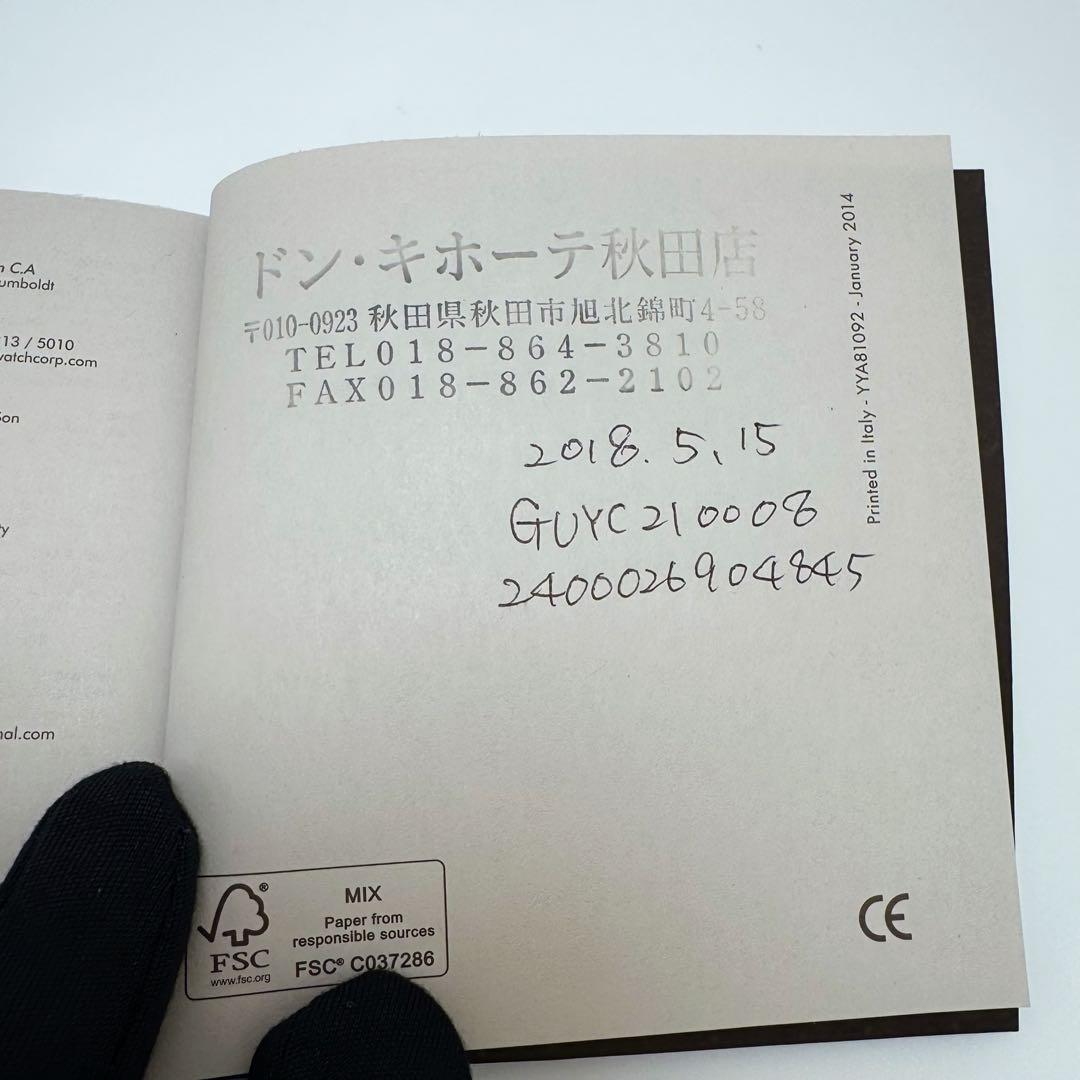 C.A
umboldt
13 / 5010
watchcorp.com
Son
ty
nal.com
ドン・キホーテ秋田店
〒010-0923 秋田県秋田市旭北錦町4-58
TEL018-864-3810
FAX018-862-2102
2018.5.15
GUYC210008
2400026904845
Printed in Italy - YYA81092 - January 2014
FSC®
www.fsc.org
MIX
Paper from
responsible sources
FSC® C037286
CE